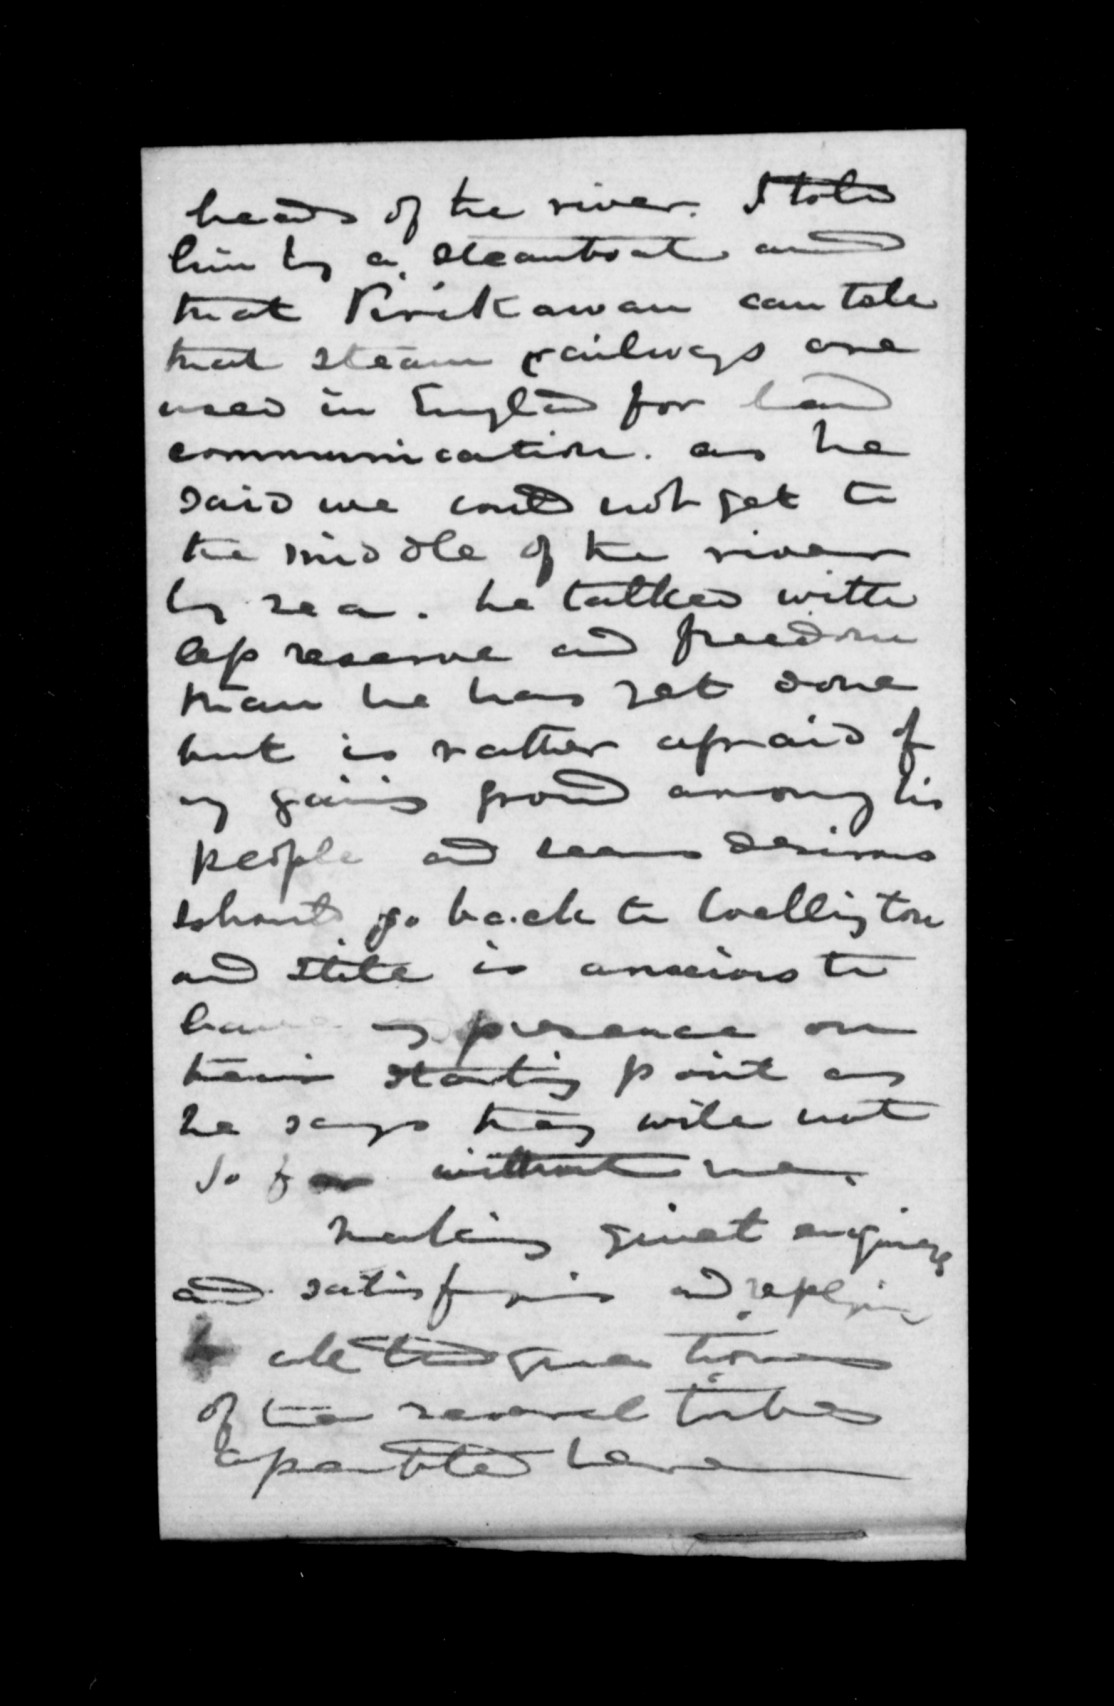 heads of the river. I told
him by a steamboat and
that Pirikawau can tell
that steam railways are
used in Englad for land
communication. as he
said we could not get to
the middle of the river
by sea. he talked with
less reserve and freedom
than he has yet done
but is rather afraid of
my gaing ground among his
people and seems desirous
I should go back to Wellington
and still is anxious to
have my presence on
their starting point as
he says they will not
do for without me.
Making quiet enquiry
and satisfying and replying
to all the questions
of the several tribes
assembled here